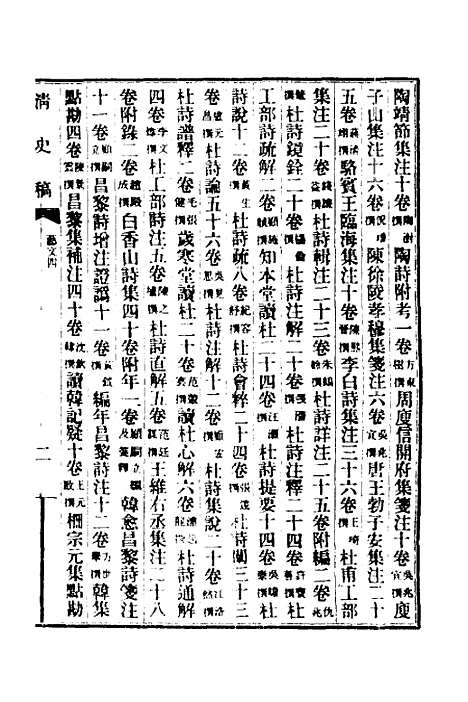 陶靖節集注十卷陶澍撰陶詩附考一卷方東樹撰周庾信開府集箋注十卷吳兆宜撰庾
子山集注十六卷倪璠撰陳徐陵孝穆集箋注六卷吳兆宜撰唐王勃子安集注二十
五卷蔣清翊撰駱賓王臨海集注十卷陳熙晉撰李白詩集注三十六卷王琦撰杜甫工部
集注二十卷錢謙益撰杜詩輯注二十三卷朱鶴齡撰杜詩詳注二十五卷附編二卷仇兆
鰲撰杜詩鏡銓二十卷楊倫撰杜詩注解二十卷張溍撰杜詩注釋二十四卷許寶善撰杜
工部詩疏解二卷顧施禎撰知本堂讀杜二十四卷汪灝撰杜詩提要十四卷吳瞻泰撰杜
詩說十二卷黃生撰杜詩疏八卷紀容舒撰杜詩會粹二十四卷張遠撰杜詩闡三十三
卷盧元昌撰杜詩論五十六卷吳見思撰杜詩注解十二卷顧宏撰杜詩集說二十卷江浩然撰
杜詩譜釋二卷毛張健撰歲寒堂讀杜二十卷范輦雲撰讀杜心解六卷浦起龍撰杜詩通解
四卷李文煒撰杜工部詩注五卷陳之壎撰杜詩直解五卷范廷謀撰王維右丞集注二十八
卷附錄二卷趙殿成撰白香山詩集四十卷附年一卷汪立名撰及箋釋韓愈昌黎詩箋注
十一卷顧嗣立撰昌黎詩增注證譌十一卷黃鉞撰編年昌黎詩注十二卷方世舉撰韓集
點勘四卷陳景雲撰昌黎集補注四十卷沈欽韓撰讀韓記疑十卷王元啟撰柳宗元集點勘
清史稿
藝文四
二